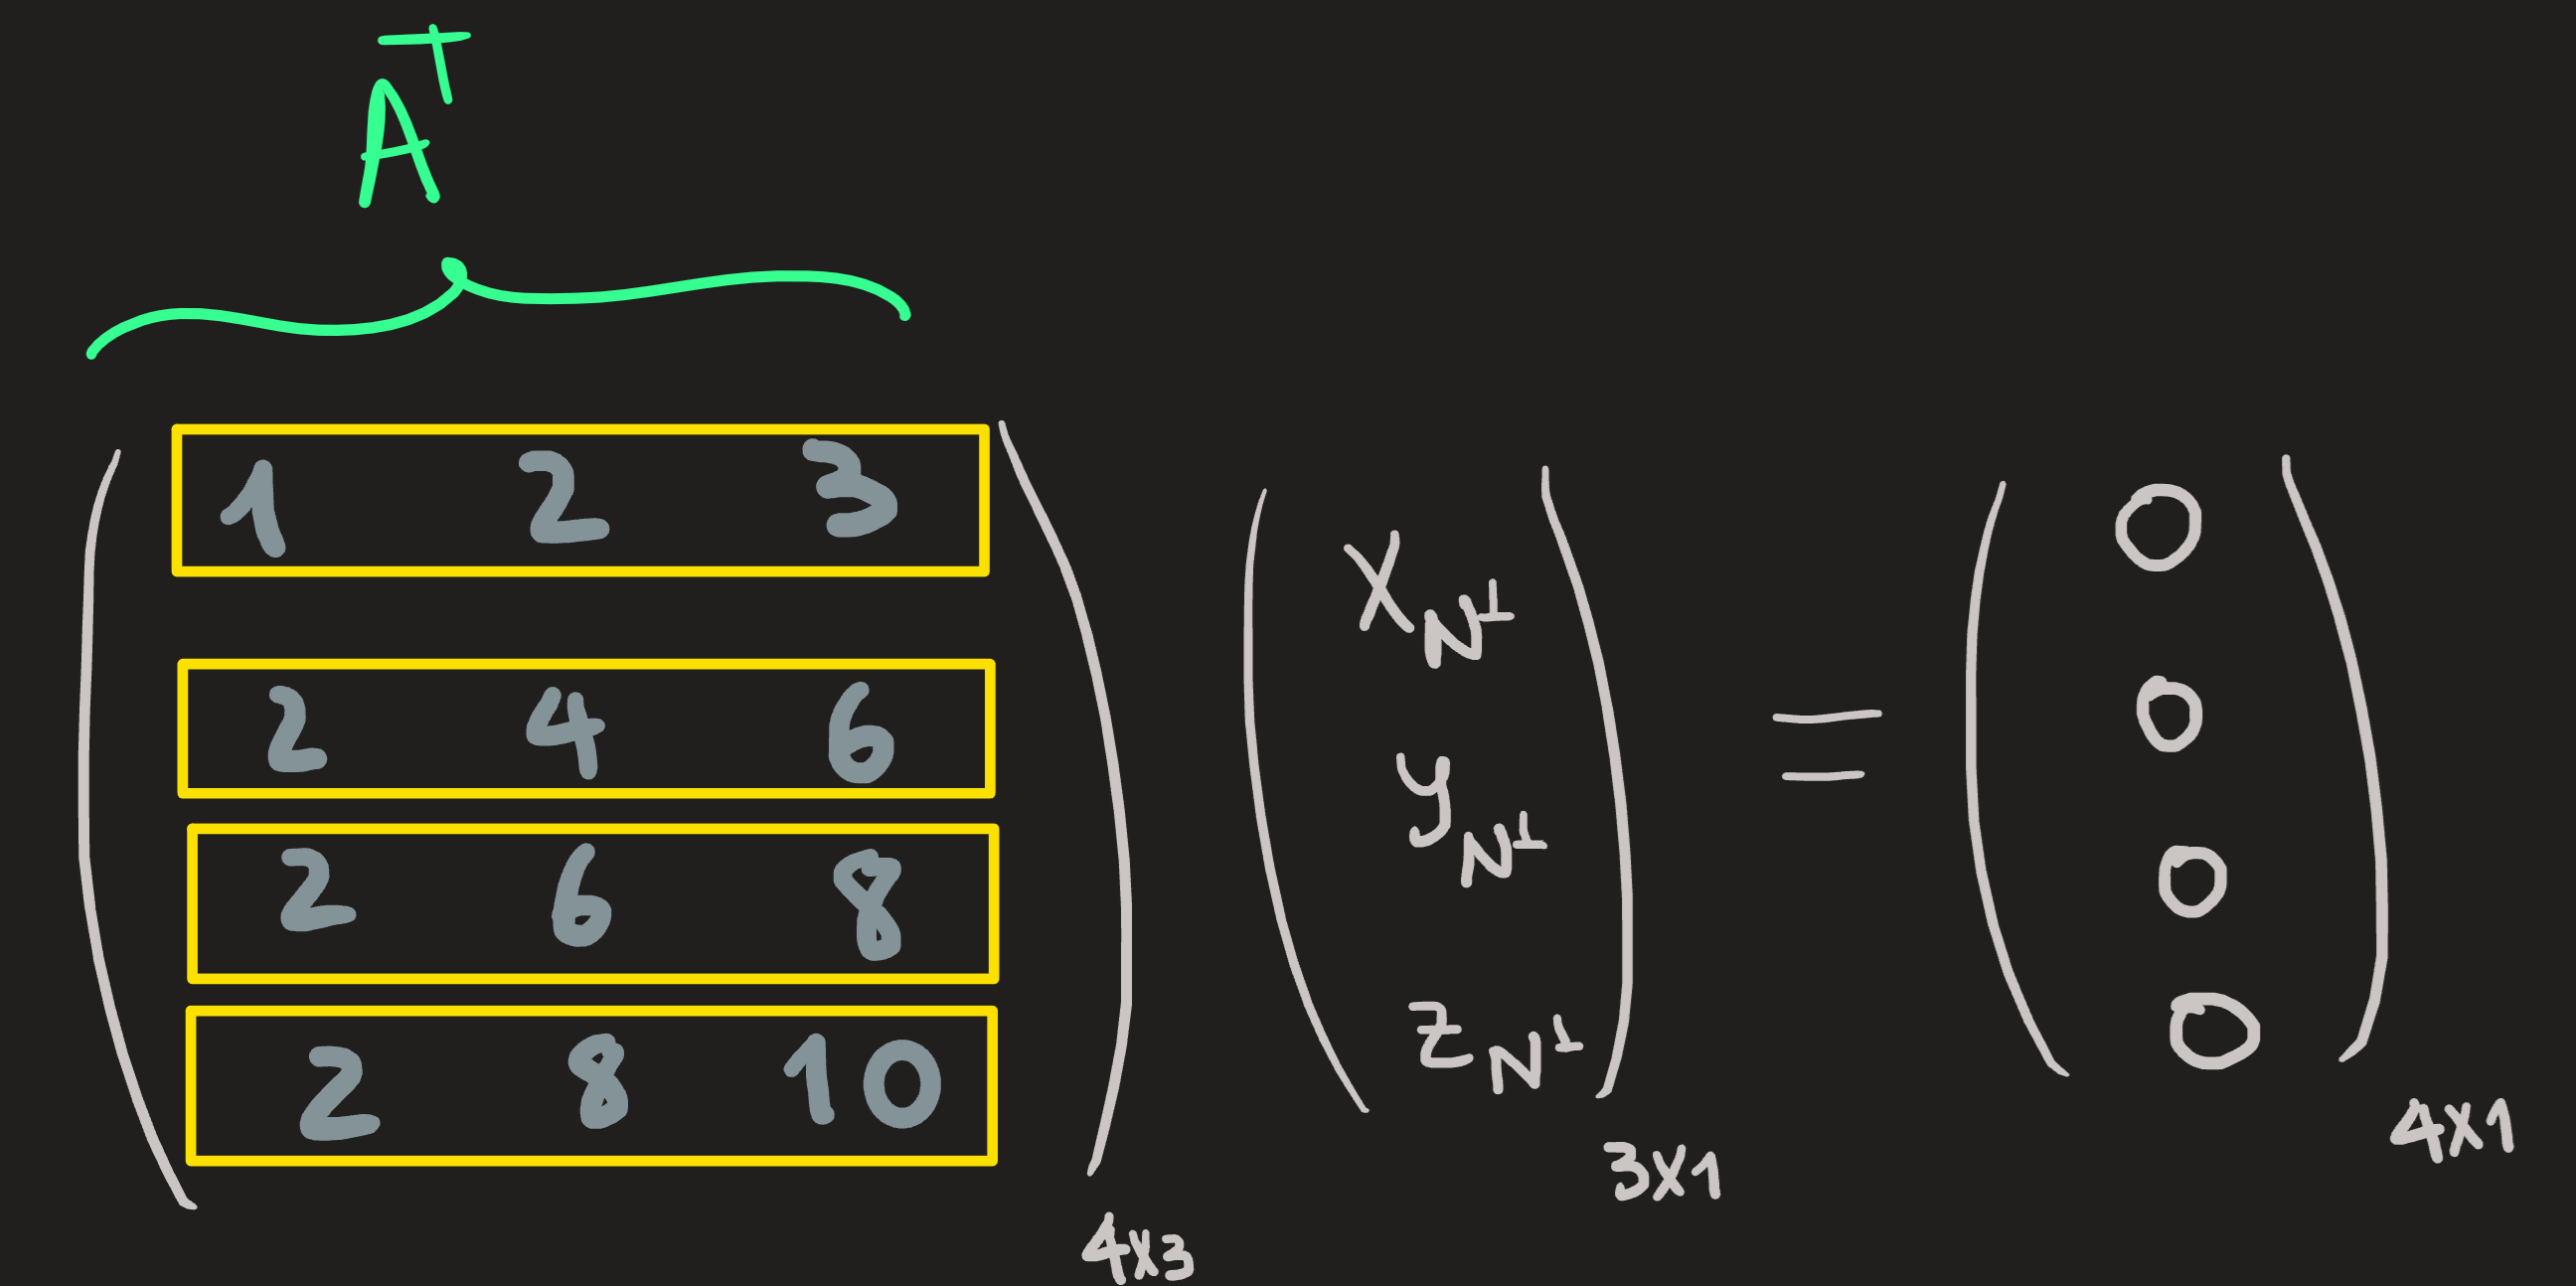 Aᵀ
1 2 3
2 4 6
2 6 8
2 8 10
4x3
x_N⊥
y_N⊥
z_N⊥
3x1
=
0
0
0
0
4x1